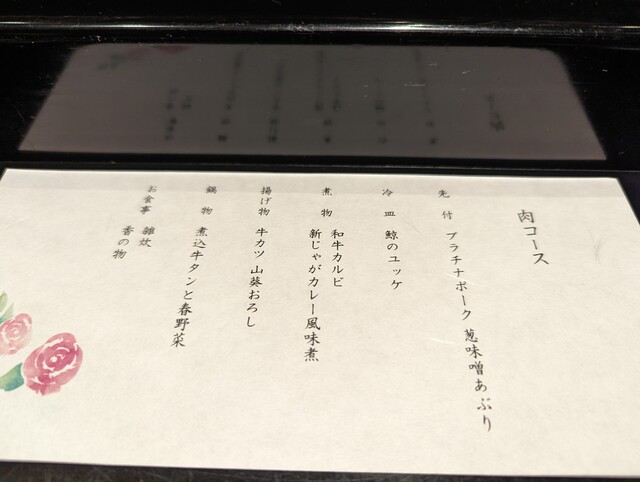 肉コース
先付 プラチナポーク 葱味噌あぶり
冷皿 鯨のユッケ
煮物 和牛カルビ
新じゃがカレー風味煮
揚げ物 牛カツ 山葵おろし
鍋物 煮込牛タンと春野菜
お食事 雑炊
香の物